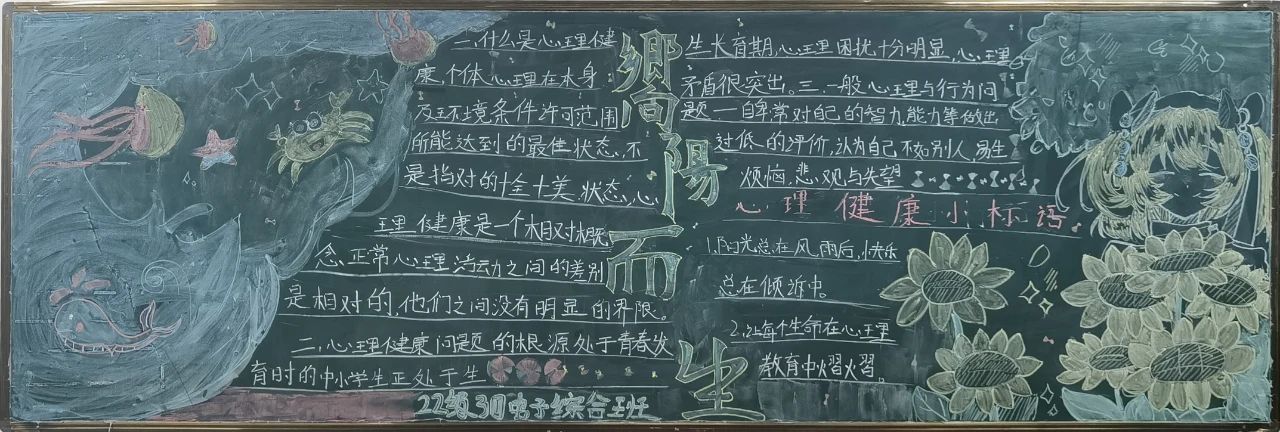 一、什么是心理健
康,个体心理在本身
及环境条件许可范围
所能达到的最佳状态,不
是指对的十全十美状态,心
理健康是一个相对概
念,正常心理活动之间的差别
是相对的,他们之间没有明显的界限。
二、心理健康问题的根源处于青春发
育时的中小学生正处于生
22级3+4电子综合班
嚮陽而生
生长育期,心理困扰十分明显,心理
矛盾很突出。三、一般心理与行为问
题一自卑常对自己的智力,能力等做出
过低的评价,认为自己不如别人,易生
烦恼,悲观与失望
心理健康小标语
1.阳光总在风雨后,快乐
总在倾诉中。
2.让每个生命在心理
教育中熠熠。